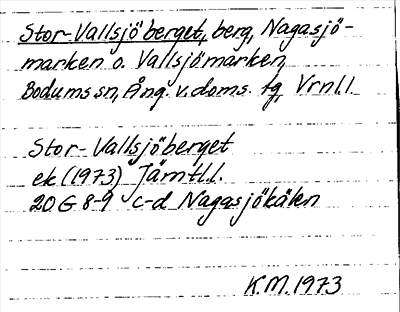 Stor-Vallsjöberget, berg, Nagasjö-
marken o. Vallsjömarken,
Bodums sn, Ång. v. doms. tg, Vrnl.l.
Stor-Vallsjöberget
ek (1973) Jämtl.l.
20 G 8-9 c-d Nagasjökälen
K.M. 1973